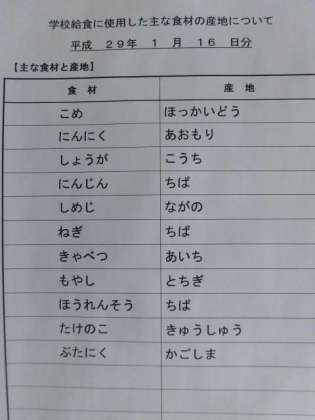 学校給食に使用した主な食材の産地について
平成 29年 1 月 16 日分
【主な食材と産地】
食 材 産 地
こめ ほっかいどう
にんにく あおもり
しょうが こうち
にんじん ちば
しめじ ながの
ねぎ ちば
きゃべつ あいち
もやし とちぎ
ほうれんそう ちば
たけのこ きゅうしゅう
ぶたにく かごしま